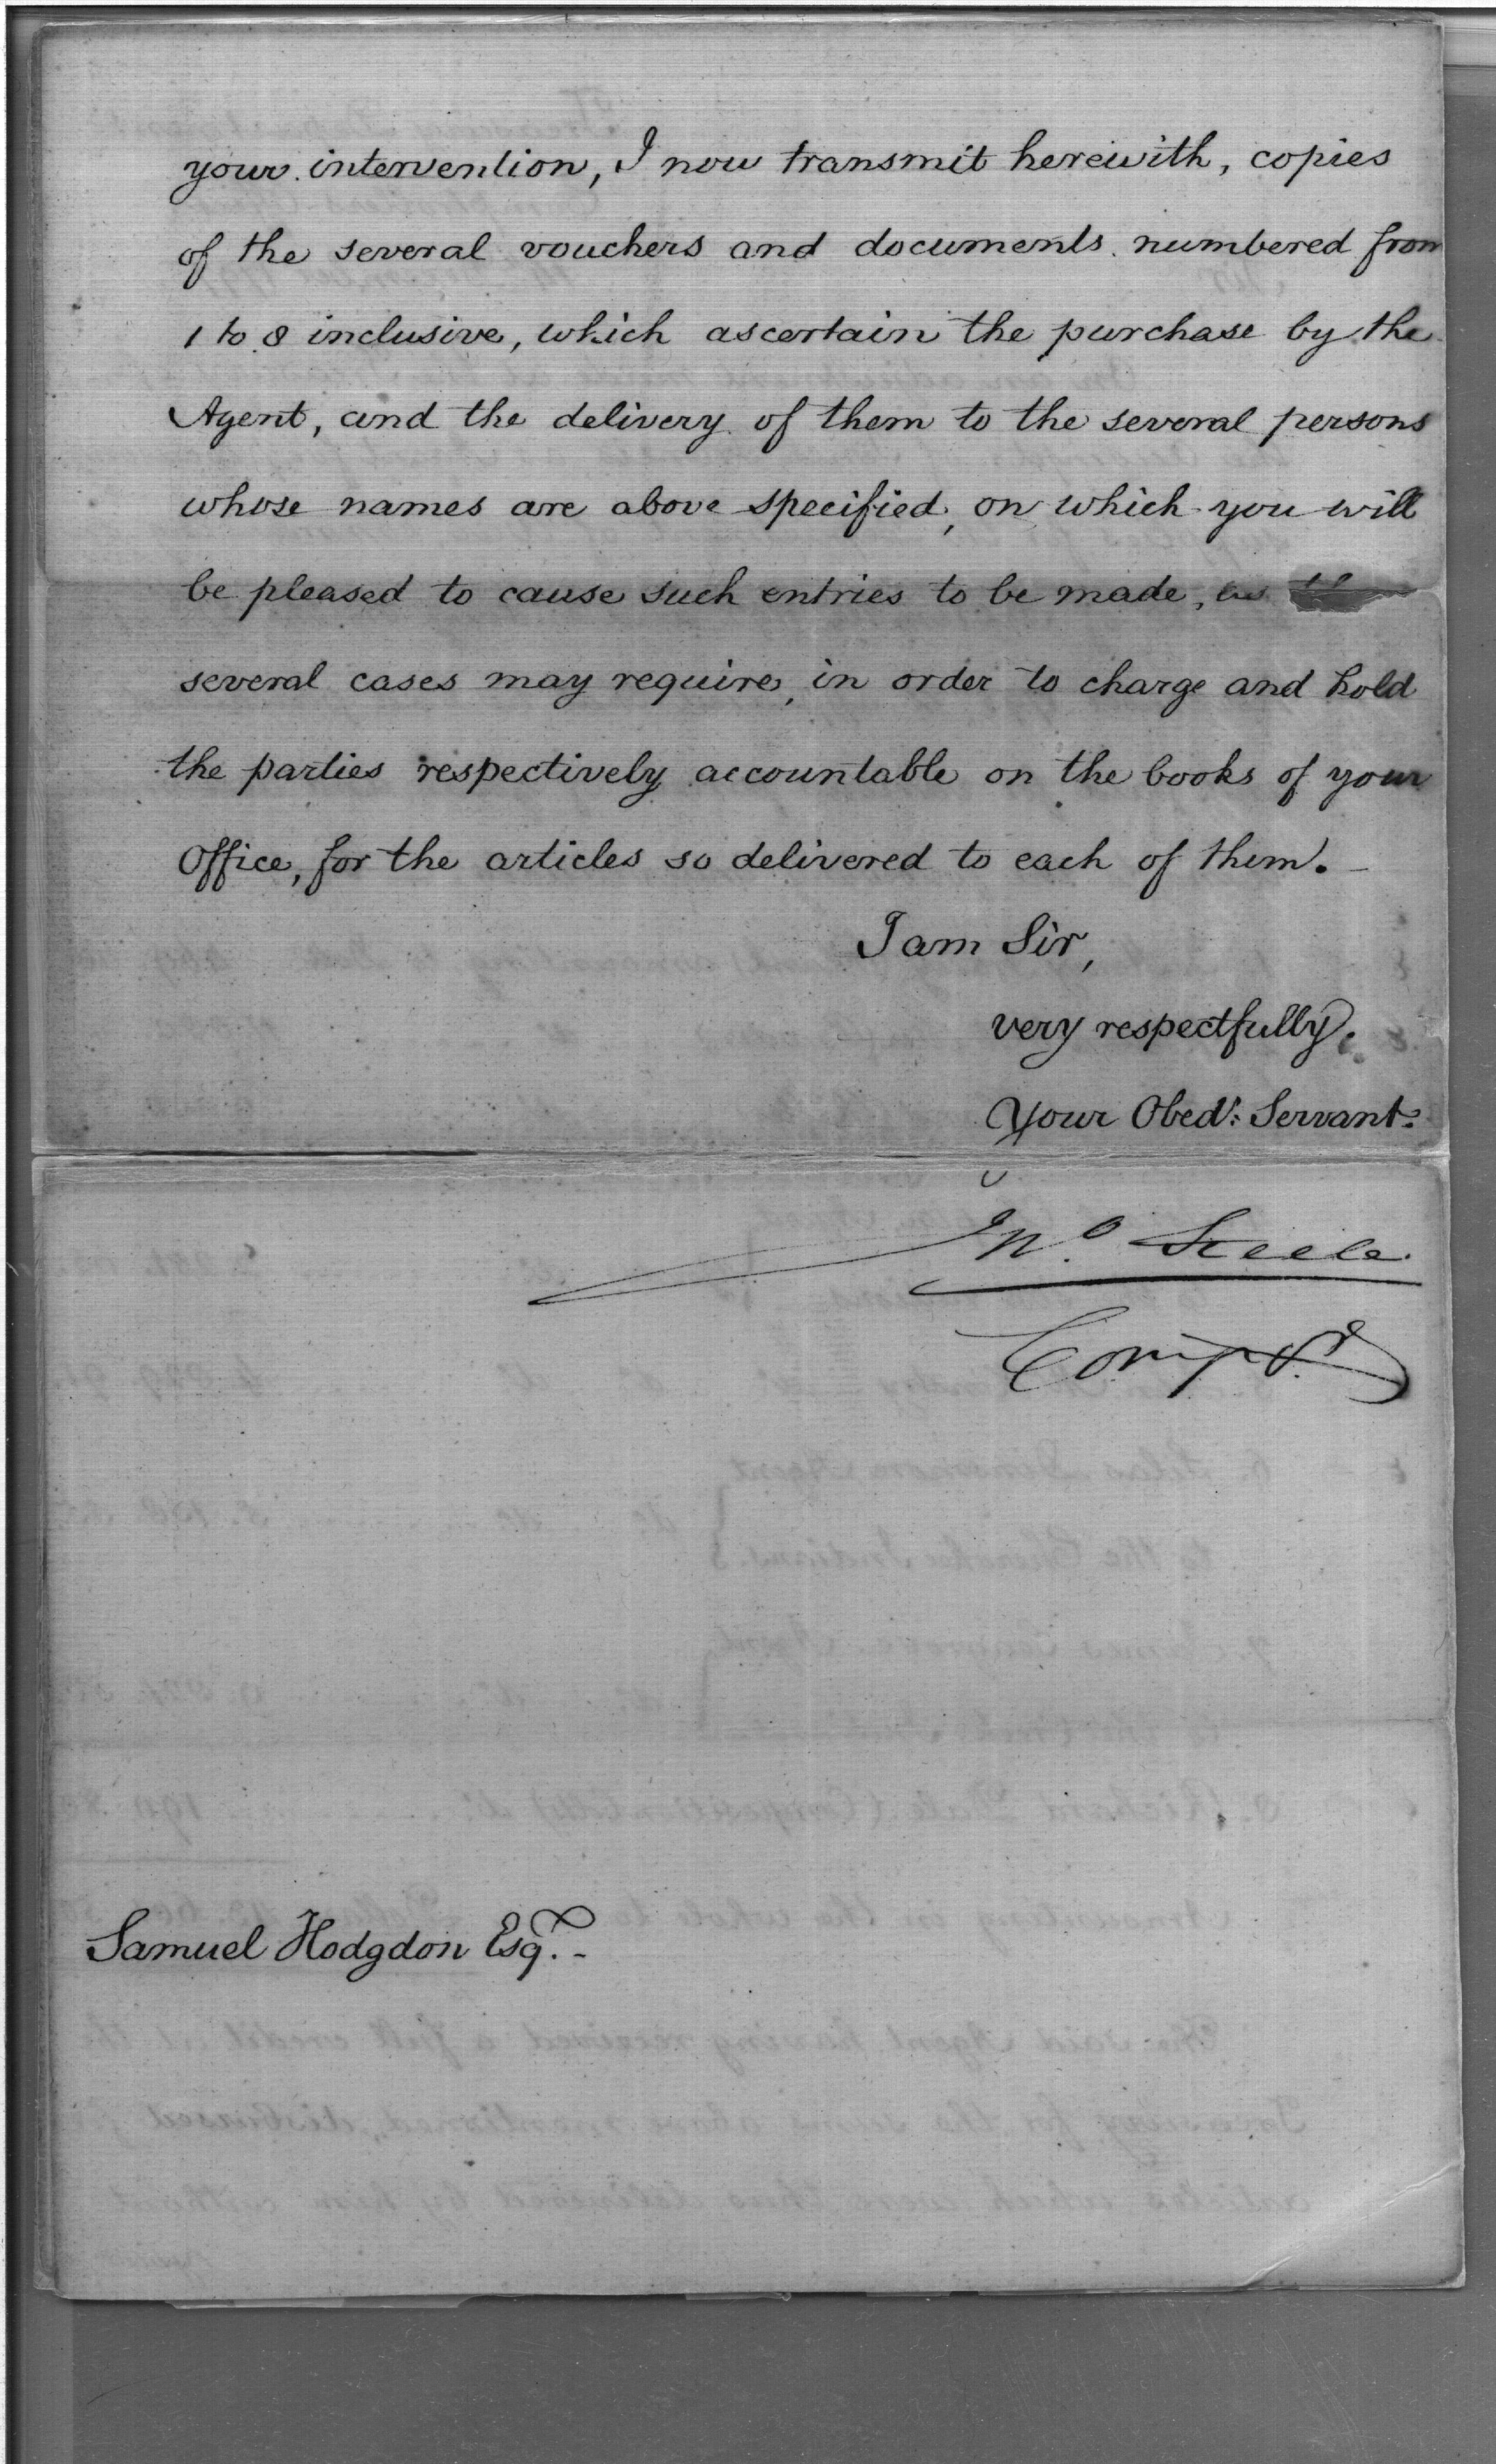 your intervention, I now transmit herewith, copies
of the several vouchers and documents numbered from
1 to 8 inclusive, which ascertain the purchase by the
Agent, and the delivery of them to the several persons
whose names are above specified, on which you will
be pleased to cause such entries to be made, as the
several cases may require, in order to charge and hold
the parties respectively accountable on the books of your
Office, for the articles so delivered to each of them.
I am Sir,
very respectfully.
Your Obedt: Servant.
Jno. Steele
Compr.
Samuel Hodgdon Esq.